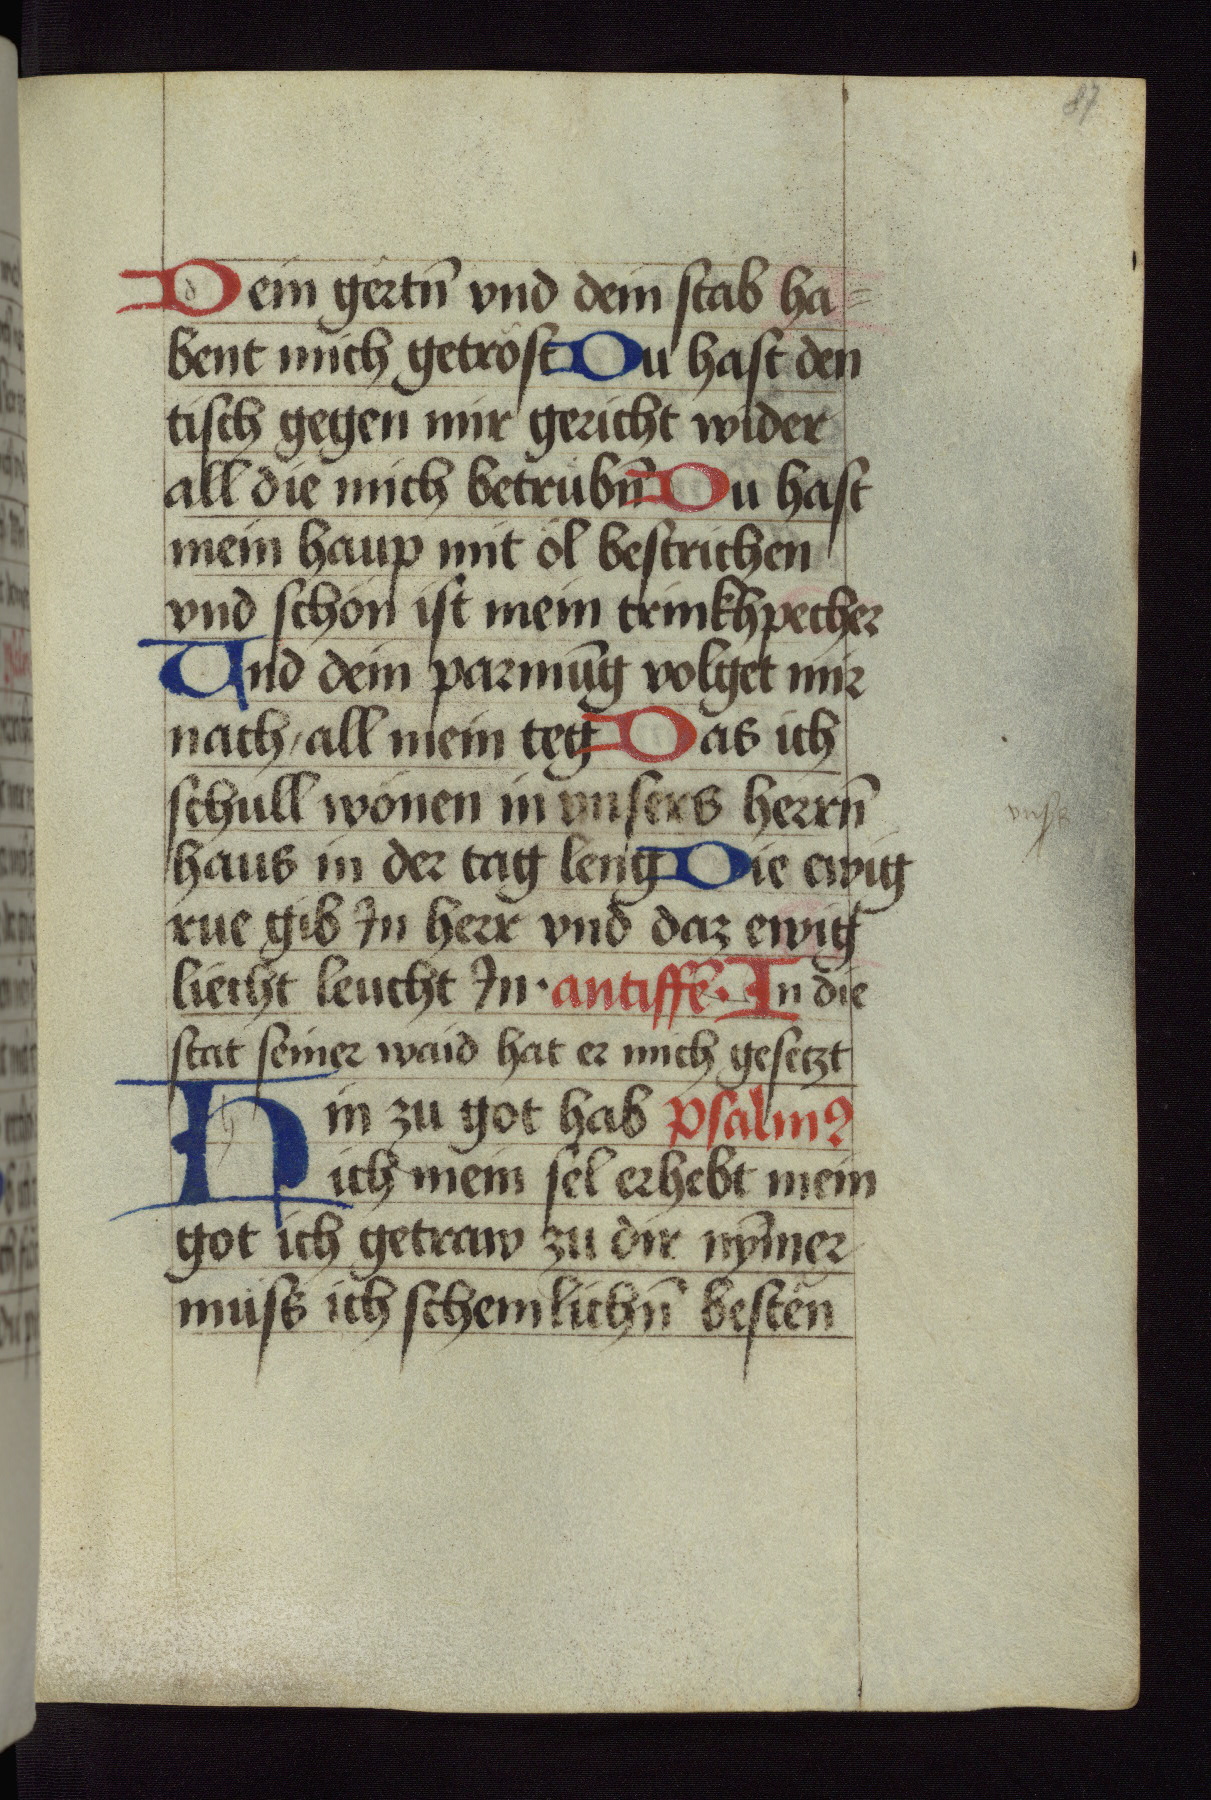 87
Dein gertn̄ vnd dein stab ha=
bent mich getröst Du hast den
tisch gegen mir gericht wider
all die mich betrübn̄ Du hast
mein haup mit öl bestrichen
vnd schön ist mein trinkhpecher
Und dein parmūg volget mir
nach / all mein teg Das ich
schull wonen in vnsers herrn̄
haus in der tag leng Die ewig
rue gib In herr vnd daz ewig
liecht leucht In · antiffē · In die
stat seiner waid hat er mich gesetzt
Hin zu got hab psalmꝰ
ich mein sel erhebt mein
got ich getraw zu dir nȳmer
muss ich schemlichn̄ besten